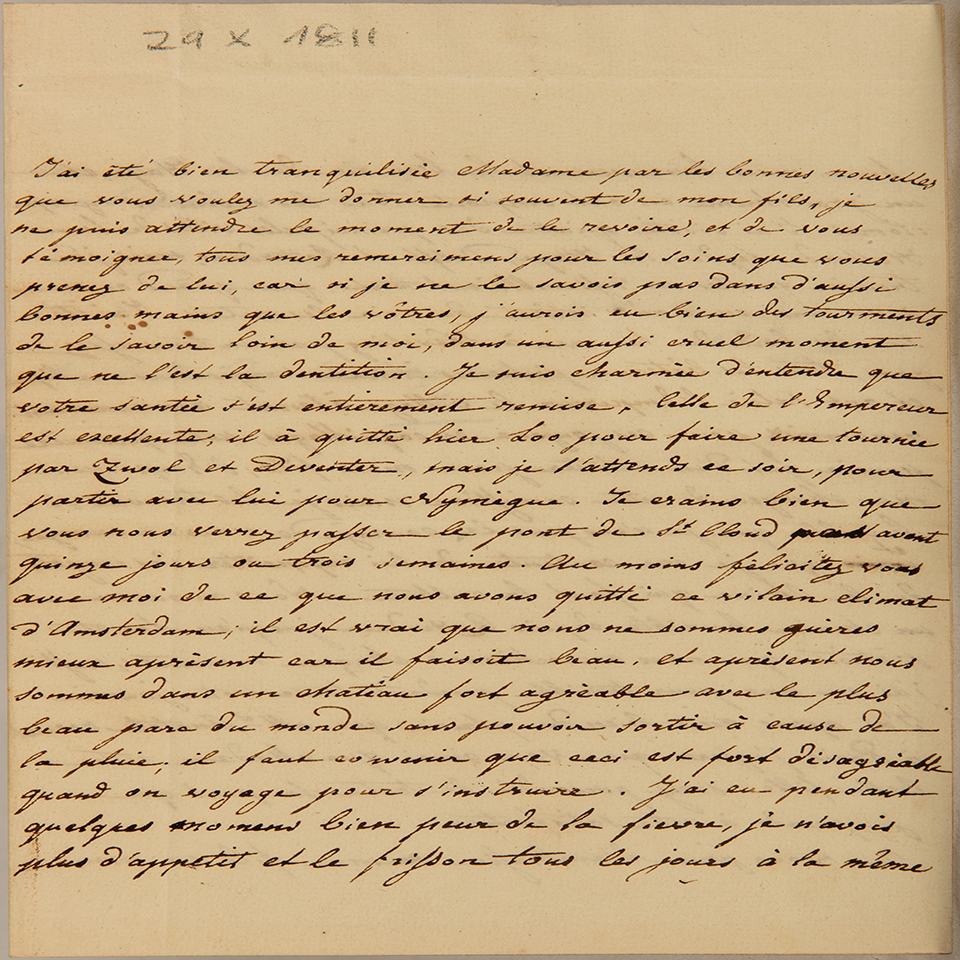 29 X 1811
J'ai été bien tranquilisée Madame par les bonnes nouvelles
que vous voulez me donner si souvent de mon fils, je
ne puis attendre le moment de le revoire, et de vous
témoignee, tous mes remercimens pour les soins que vous
prenez de lui, car si je ne le savois pas dans d'aussi
bonnes mains que les vôtres, j'aurois eu bien des tourments
de le savoir loin de moi, dans un aussi cruel moment
que ne l'est la dentition. Je suis charmée d'entendre que
votre santée s'est entièrement remise, Celle de l'Empereur
est excellente, il à quitté hier Loo pour faire une tournée
par Zwol et Deventer, mais je l'attends ce soir, pour
partir avec lui pour Nymègue. Je crains bien que
vous nous verrez passer le pont de St Cloud avant
quinze jours ou trois semaines. Au moins félicitez vous
avec moi de ce que nous avons quitté ce vilain climat
d'Amsterdam; il est vrai que nous ne sommes guères
mieux aprésent car il faisoit beau, et aprésent nous
sommes dans un chateau fort agréable avec le plus
beau parc du monde sans pouvoir sortir à cause de
la pluie, il faut convenir que ceci est fort désagréable
quand on voyage pour s'instruire. J'ai eu pendant
quelques momens bien peur de la fievre, je n'avois
plus d'appetit et le frisson tous les jours à la même